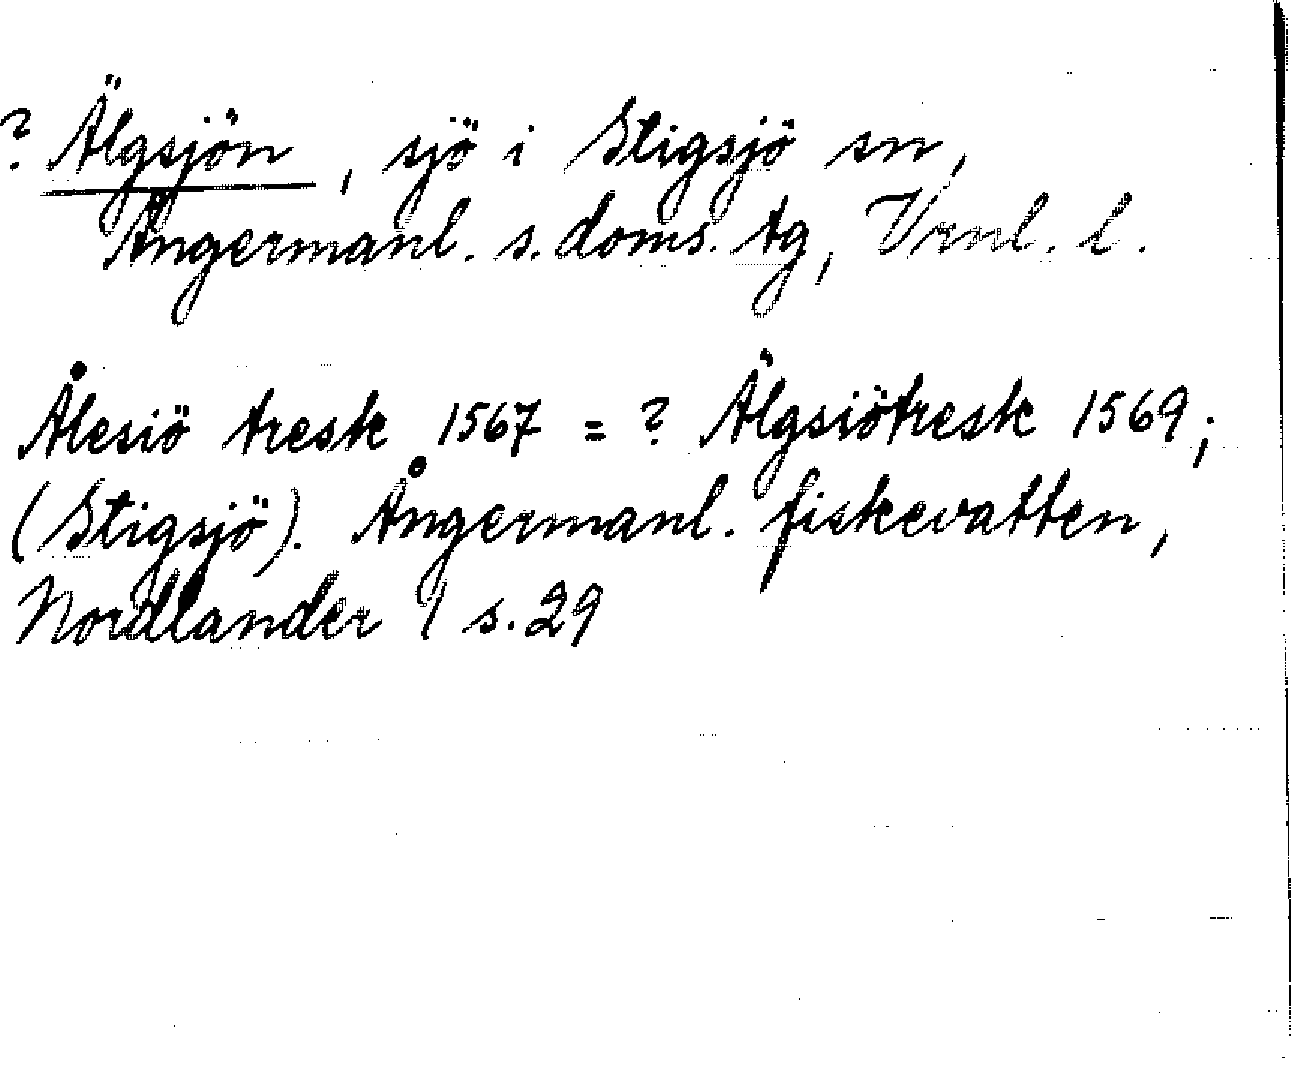 ? Älgsjön, sjö i Stigsjö sn,
Ångermanl. s. doms. tg, Vrnl. l.
Ålesiö tresk 1567 = ? Älgsiötresk 1569;
(Stigsjö). Ångermanl. fiskevatten,
Nordlander I s. 29